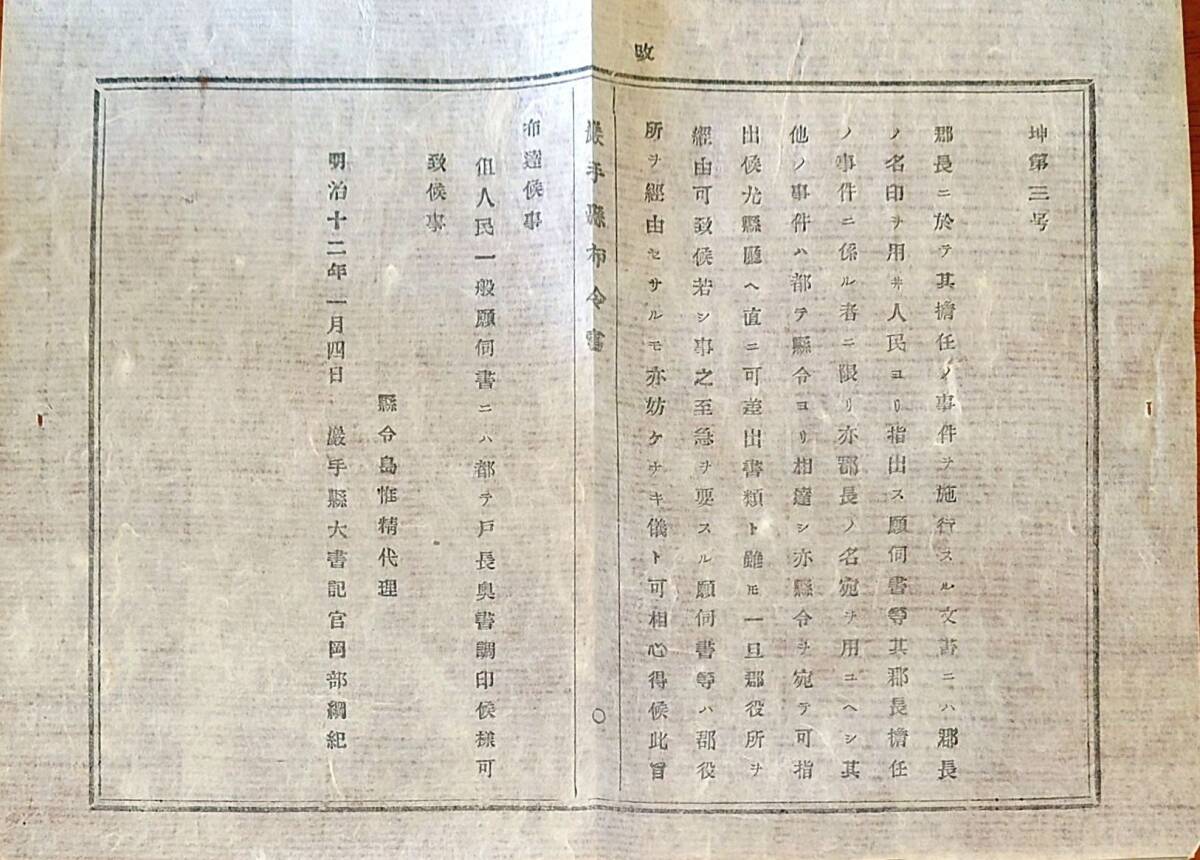 坤第三号
郡長ニ於テ其擔任ノ事件ヲ施行スル文書ニハ郡長
ノ名印ヲ用ヰ人民ヨリ指出ス願伺書等其郡長擔任
ノ事件ニ係ル者ニ限リ亦郡長ノ名宛ヲ用ユヘシ其
他ノ事件ハ都テ縣令ヨリ相達シ亦縣令ヲ宛テ可指
出候尤縣廳ヘ直ニ可差出書類ト雖モ一旦郡役所ヲ
經由可致候若シ事之至急ヲ要スル願伺書等ハ郡役
所ヲ經由セサルモ亦妨ケナキ儀ト可相心得候此旨
巖手縣布令書
布達候事
但人民一般願伺書ニハ都テ戸長奥書調印候樣可
致候事
縣令島惟精代理
明治十二年一月四日 巖手縣大書記官岡部綱紀